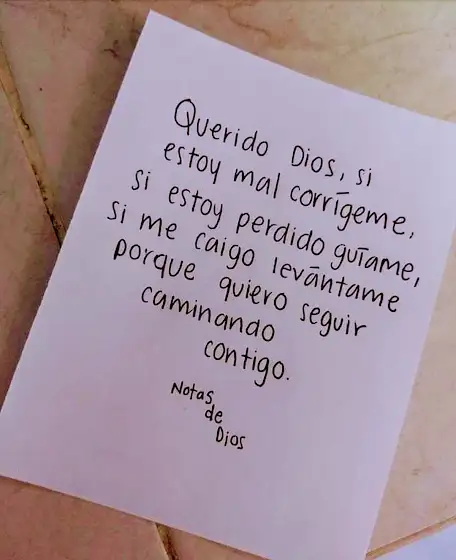 Querido Dios, si
estoy mal corrígeme,
si estoy perdido guíame,
si me caigo levántame
porque quiero seguir
caminando
contigo.
Notas
de
Dios